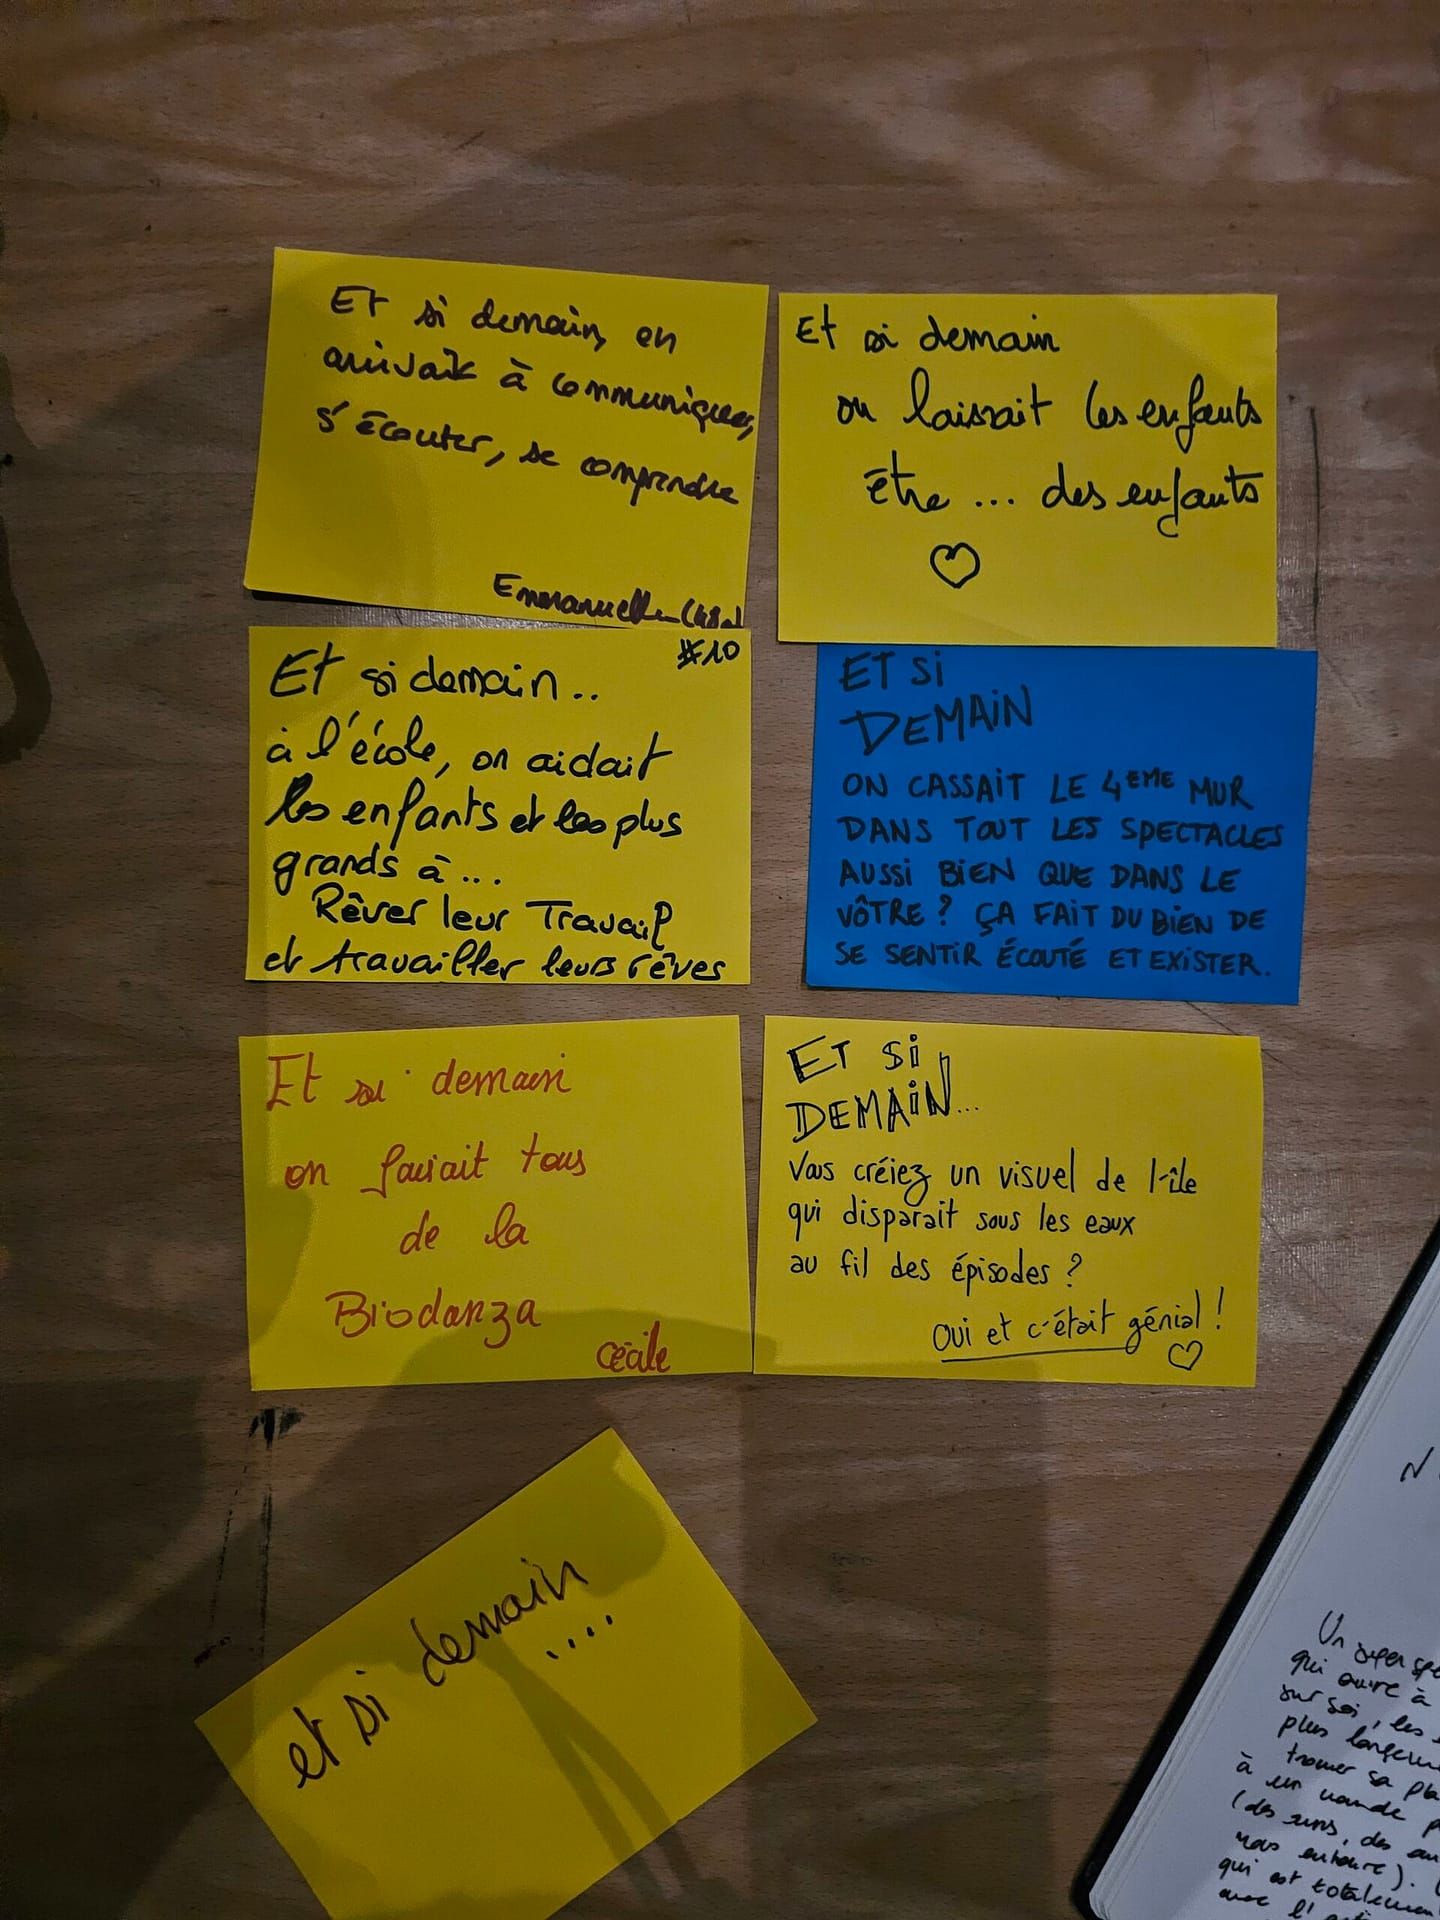 Et si demain, on
arrivait à communiquer,
s'écouter, se comprendre
Emmanuelle
Et si demain
on laissait les enfants
être ... des enfants
#10
Et si demain..
à l'école, on aidait
les enfants et les plus
grands à ...
Rêver leur Travail
et travailler leurs rêves
ET Si
DEMAiN
ON CASSAIT LE 4EME MUR
DANS TOUT LES SPECTACLES
AUSSI BIEN QUE DANS LE
VÔTRE ? ÇA FAIT DU BIEN DE
SE SENTIR ÉCOUTÉ ET EXISTER.
Et si demain
on faisait tous
de la
Biodanza
Cécile
ET Si
DEMAiN...
Vous créiez un visuel de l'île
qui disparait sous les eaux
au fil des épisodes ?
Oui et c'était génial !
et si demain
....
Un super
qui ouvre à
sur soi, les
plus
trouver sa
à un monde
(des
nous entoure).
qui est
avec l'